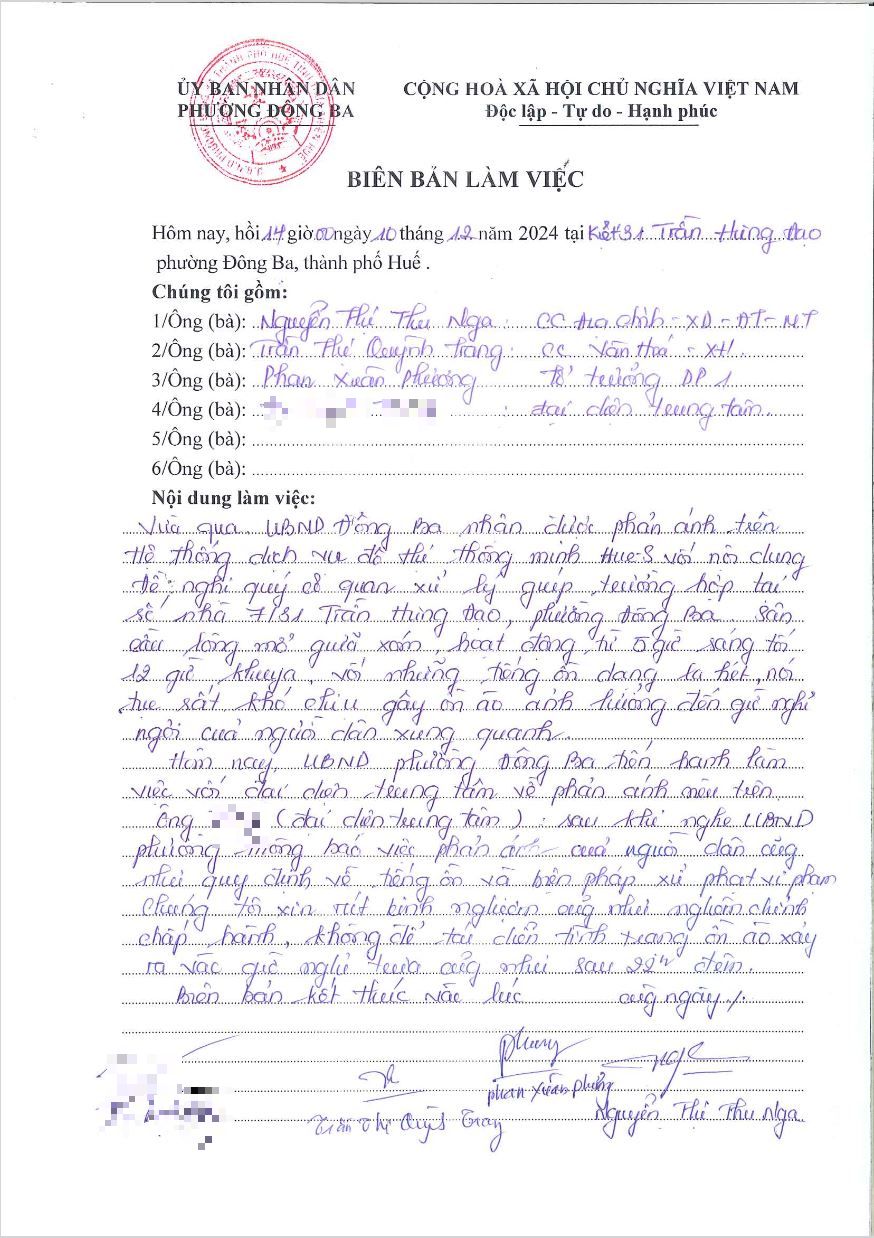 ỦY BAN NHÂN DÂN
PHƯỜNG ĐÔNG BA
CỘNG HOÀ XÃ HỘI CHỦ NGHĨA VIỆT NAM
Độc lập - Tự do - Hạnh phúc
BIÊN BẢN LÀM VIỆC
Hôm nay, hồi 14 giờ 00 ngày 10 tháng 12 năm 2024 tại Kiệt 31 Trần Hưng Đạo
phường Đông Ba, thành phố Huế .
Chúng tôi gồm:
1/Ông (bà): Nguyễn Thị Thu Nga : CC Địa chính - XD - ĐT - MT
2/Ông (bà): Trần Thị Quỳnh Trang : CC Văn Hoá - XH
3/Ông (bà): Phan Xuân Phương Tổ trưởng DP 1
4/Ông (bà): : đại diện trung tâm
5/Ông (bà):
6/Ông (bà):
Nội dung làm việc:
Vừa qua UBND Đông Ba nhận được phản ánh trên
Hệ thống dịch vụ đô thị thông minh Hue-S với nội dung
Đề nghị quý cơ quan xử lý giúp trường hợp tại
số nhà 7/31 Trần Hưng Đạo, phường Đông Ba. Sân
cầu lông mở giữa xóm, hoạt động từ 5 giờ sáng tới
12 giờ khuya, với những tiếng ồn dang la hét, nói
tục rất khó chịu gây ồn ào ảnh hưởng đến giờ nghỉ
ngơi của người dân xung quanh.
Hôm nay, UBND phường Đông Ba tiến hành làm
việc với đại diện trung tâm về phản ánh nêu trên.
Ông (đại diện trung tâm) : sau khi nghe UBND
phường thông báo việc phản ánh của người dân cũng
như quy định về tiếng ồn và biện pháp xử phạt vi phạm
Chúng tôi xin rút kinh nghiệm cũng như nghiêm chỉnh
chấp hành, không để tái diễn tình trạng ồn ào xảy
ra vào giờ nghỉ trưa cũng như sau 22h đêm.
Biên bản kết thúc vào lúc cùng ngày ./.
Phương
Phan Xuân Phương
Trần Thị Quỳnh Trang
Nguyễn Thị Thu Nga